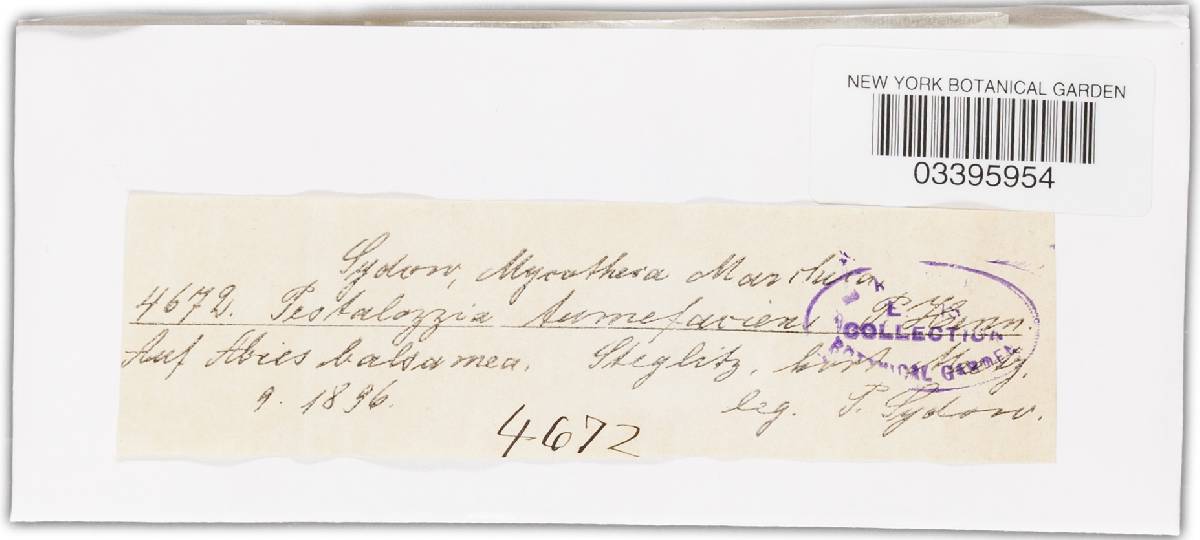 NEW YORK BOTANICAL GARDEN
03395954
Sydow, Mycotheca Marchica
4672. Pestalozzia tumefaciens P. Henn.
COLLECTION
BOTANICAL GARDEN
Auf Abies balsamea. Steglitz, hort.
9. 1896. leg. P. Sydow.
4672